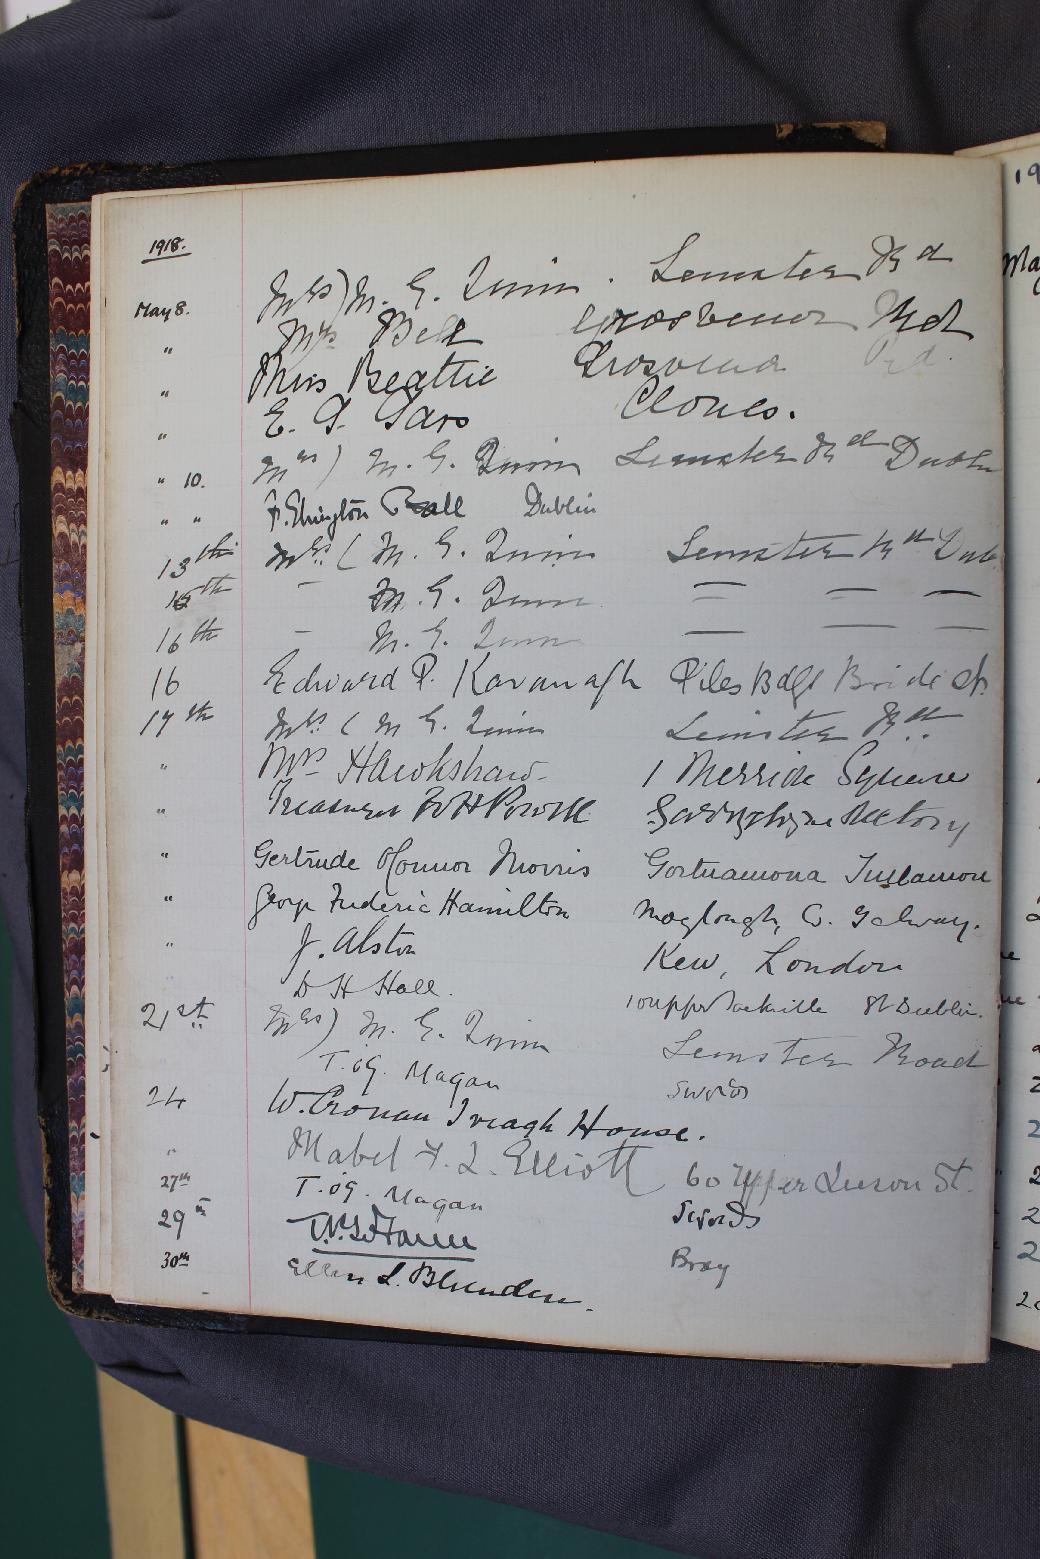 1918.
May 8. Mrs) M. G. Quinn. Leinster Rd
" Mrs Bell Grosvenor Rd
" Miss Beattie Grosvenor Rd.
" E. G. Clones.
" 10. Mrs) M. G. Quinn Leinster Rd Dublin
" " F. Elrington Ball Dublin
13th Mrs. (M. G. Quinn Leinster Rd Dub
15th — M. G. Quinn = = —
16th — M. G. Quinn — = —
16 Edward P. Kavanagh Piles Bdgs Bride St.
17th Mrs. (M G. Quinn Leinster Rd.
" Mrs Hawkshaw 1 Merrion Square
" Treasurer W H Powell Rectory
" Gertrude O'Connor Morris Gortnamona Tullamore
" George Frederic Hamilton Moylough, Co. Galway.
" J. Alston Kew, London
D H Hall. 10 Upper Sackville St Dublin.
21st Mrs) M. G. Quinn Leinster Road
T. O'G. Magan Swords
24 W. Cronan Iveagh House.
" Mabel F. L. Elliott 60 Upper Leeson St.
27th T. O'G. Magan Swords
29th Bray
30th Ellen L. Blunden.
19
May